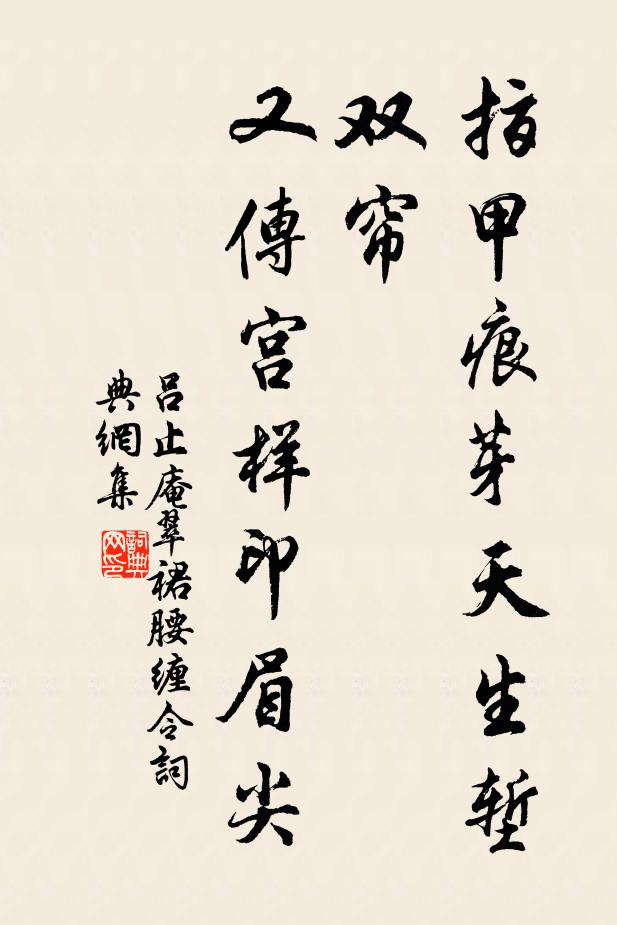 指甲痕芽天生堑
双帘
又傳宫样印眉尖
吕止庵翠裙腰缠令詞
典網集
詞典网印